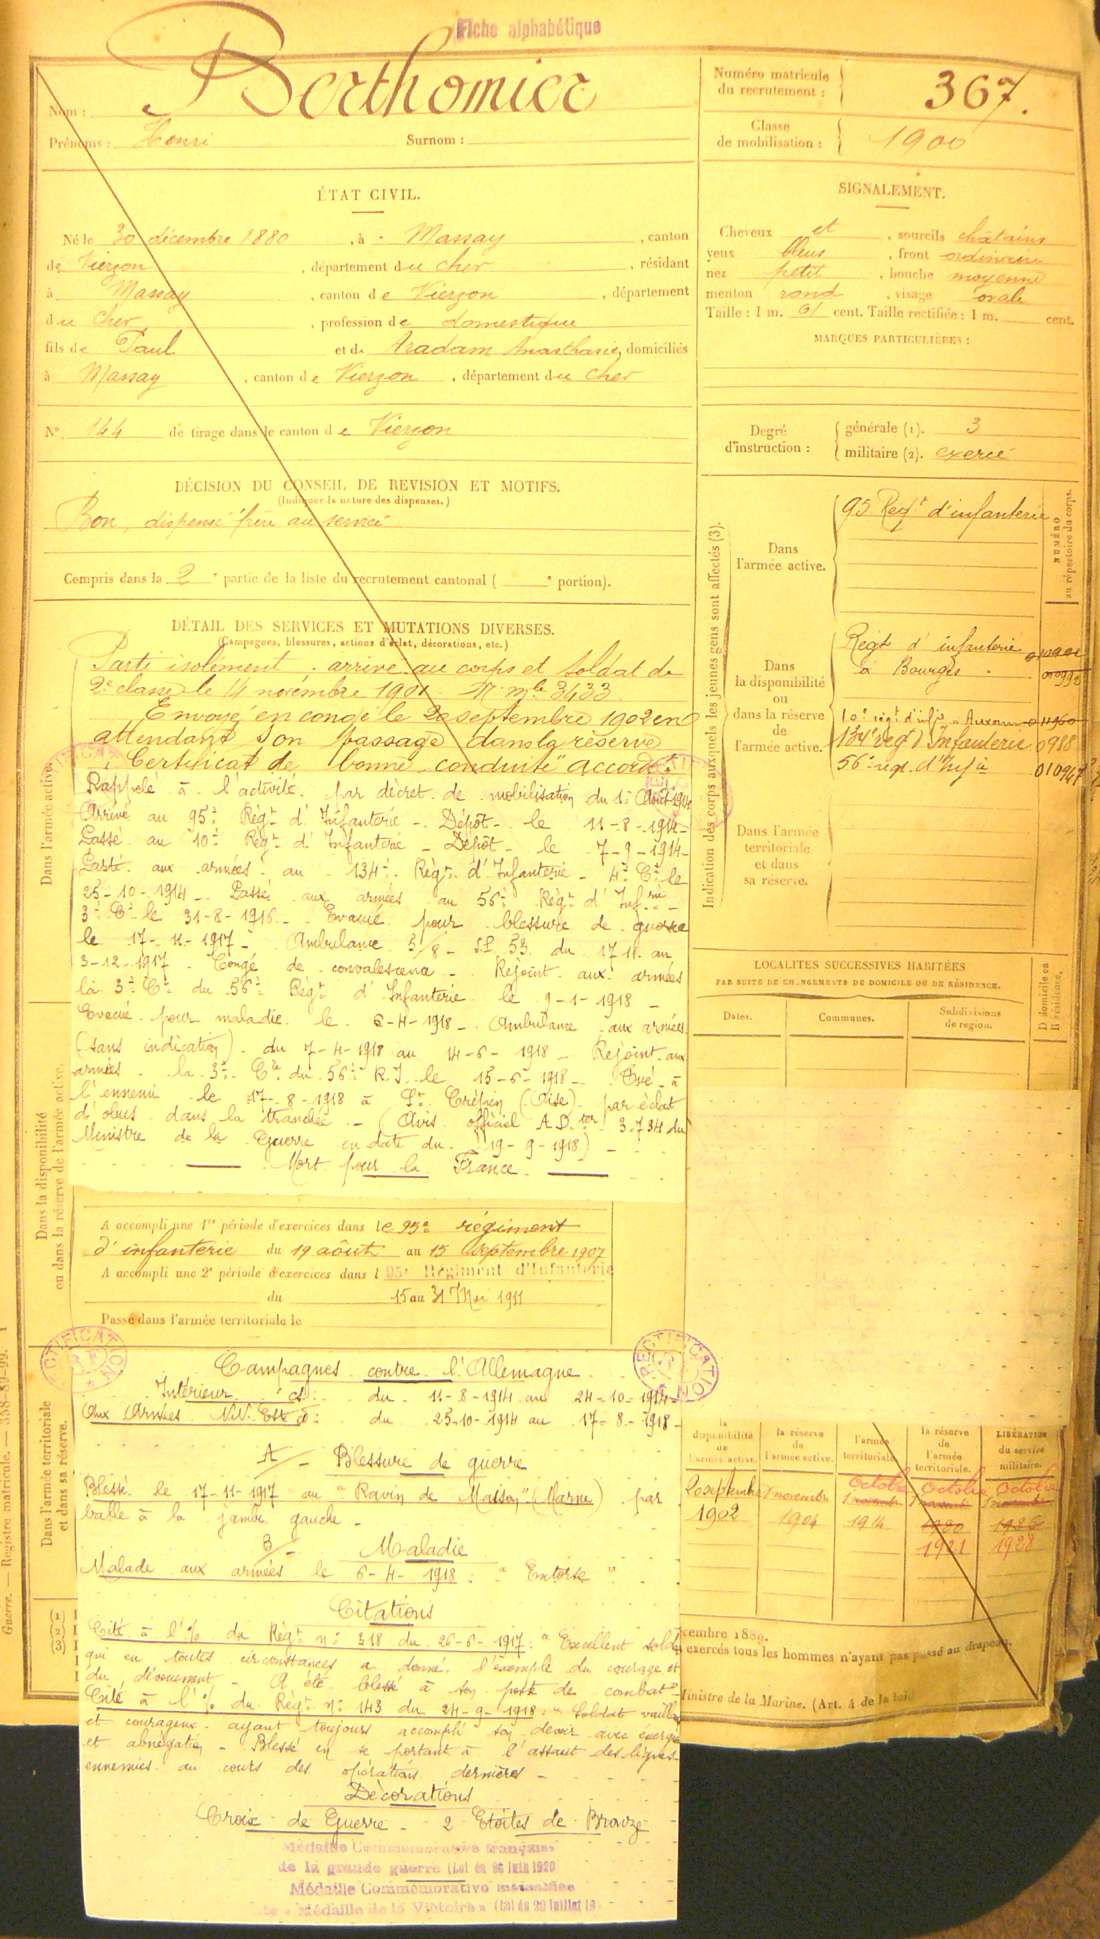 Fiche alphabétique
Nom : Berthomier
Prénoms : Henri Surnom :
Numéro matricule du recrutement : 367.
Classe de mobilisation : 1900
ÉTAT CIVIL.
Né le 30 décembre 1880, à Massay, canton
de Vierzon, département du Cher, résidant
à Massay, canton de Vierzon, département
du Cher, profession de domestique
fils de Paul et de Tradam Anasthasie, domiciliés
à Massay, canton de Vierzon, département du Cher
N° 144 de tirage dans le canton de Vierzon
SIGNALEMENT.
Cheveux et, sourcils châtains
yeux bleus, front ordinaire
nez petit, bouche moyenne
menton rond, visage ovale
Taille : 1 m. 61 cent. Taille rectifiée : 1 m. cent.
MARQUES PARTICULIÈRES :
Degré d'instruction : générale (1). 3
militaire (2). exercé
DÉCISION DU CONSEIL DE REVISION ET MOTIFS.
(Indiquer la nature des dispenses.)
Bon, dispensé frère au service
Compris dans la 2e partie de la liste du recrutement cantonal ( e portion).
DÉTAIL DES SERVICES ET MUTATIONS DIVERSES.
(Campagnes, blessures, actions d'éclat, décorations, etc.)
Dans l'armée active.
Parti isolément, arrivé au corps et soldat de
2e classe le 14 novembre 1901. N° mle 3433
Envoyé en congé le 20 septembre 1902 en
attendant son passage dans la réserve
"Certificat de bonne conduite" accordé.
Rappelé à l'activité par décret de mobilisation du 1er Août 1914
Arrivé au 95e Régt d'Infanterie - Dépôt - le 11-8-1914 -
Passé au 10e Régt d'Infanterie - Dépôt - le 7-9-1914 -
Passé aux armées au 134e Régt d'Infanterie - 4e Cie le
25-10-1914 - Passé aux armées au 56e Régt d'Infrie -
3e Cie le 31-8-1916 - Evacué pour blessure de guerre
le 17-11-1917 - Ambulance 5/8 - S.P. 53 du 17.11 au
3-12-1917 - Congé de convalescence - Rejoint aux armées
la 3e Cie du 56e Régt d'Infanterie le 9-1-1918 -
Evacué pour maladie le 6-4-1918 - Ambulance aux armées
(sans indication) du 7-4-1918 au 14-6-1918 - Rejoint aux
armées la 3e Cie du 56e R.I. le 15-6-1918 - Tué à
l'ennemi le 17-8-1918 à St Crépin (Oise) par éclat
d'obus dans la tranchée - (Avis officiel A.D. 3.734 du
Ministre de la Guerre en date du 19-9-1918) -
Mort pour la France.
Dans la disponibilité ou dans la réserve de l'armée active.
A accompli une 1re période d'exercices dans le 95e régiment
d'infanterie du 19 août au 15 septembre 1907
A accompli une 2e période d'exercices dans l 95e Régiment d'Infanterie
du 15 au 31 Mai 1911
Passé dans l'armée territoriale le
Dans l'armée territoriale et dans sa réserve.
RECTIFICATION
RECTIFICATION
Campagnes contre l'Allemagne
Intérieur du 11-8-1914 au 24-10-1914 -
Aux Armées N.N. Est du 25-10-1914 au 17-8-1918 -
A/ - Blessure de guerre
Blessé le 17-11-1917 au "Ravin de Maison" (Marne) par
balle à la jambe gauche -
B/ - Maladie
Malade aux armées le 6-4-1918 : "Entorse"
Citations
Cité à l'% du Régt n° 318 du 26-6-1917 : "Excellent soldat
qui en toutes circonstances a donné l'exemple du courage et
du dévouement - A été blessé à son poste de combat" -
Cité à l'% du Régt n° 143 du 24-9-1918 : "Soldat vaillant
et courageux ayant toujours accompli son devoir avec énergie
et abnégation - Blessé en se portant à l'assaut des lignes
ennemies au cours des opérations dernières -
Décorations
Croix de Guerre - 2 Etoiles de Bronze
Médaille Commémorative française
de la grande guerre (Loi du 26 juin 1920
Médaille Commémorative interalliée
dite « Médaille de la Victoire » (Loi du 20 juillet 19
Indication des corps auxquels les jeunes gens sont affectés (3).
NUMÉRO au répertoire du corps.
Dans l'armée active.
95 Regt d'infanterie
Dans la disponibilité ou dans la réserve de l'armée active.
Régt d'infanterie
à Bourges
10e régt d'infie Auxonne
134e régt d'Infanterie 0988
56e régt d'Infie 010947
Dans l'armée territoriale et dans sa réserve.
LOCALITÉS SUCCESSIVES HABITÉES
PAR SUITE DE CHANGEMENTS DE DOMICILE OU DE RÉSIDENCE.
Dates. Communes. Subdivisions de région. D domicile ou R résidence.
la disponibilité de l'armée active. la réserve de l'armée active. l'armée territoriale. la réserve de l'armée territoriale. LIBÉRATION du service militaire.
20 septembre 1902
1 novembre 1904
Octobre 1 novembre 1914
Octobre 1 novembre 1920 1921
Octobre 1 novembre 1926 1928
cembre 1889.
exercés tous les hommes n'ayant pas passé au drapeau.
Ministre de la Marine. (Art. 4 de la loi
Guerre. — Registre matricule. — 358-89-99.